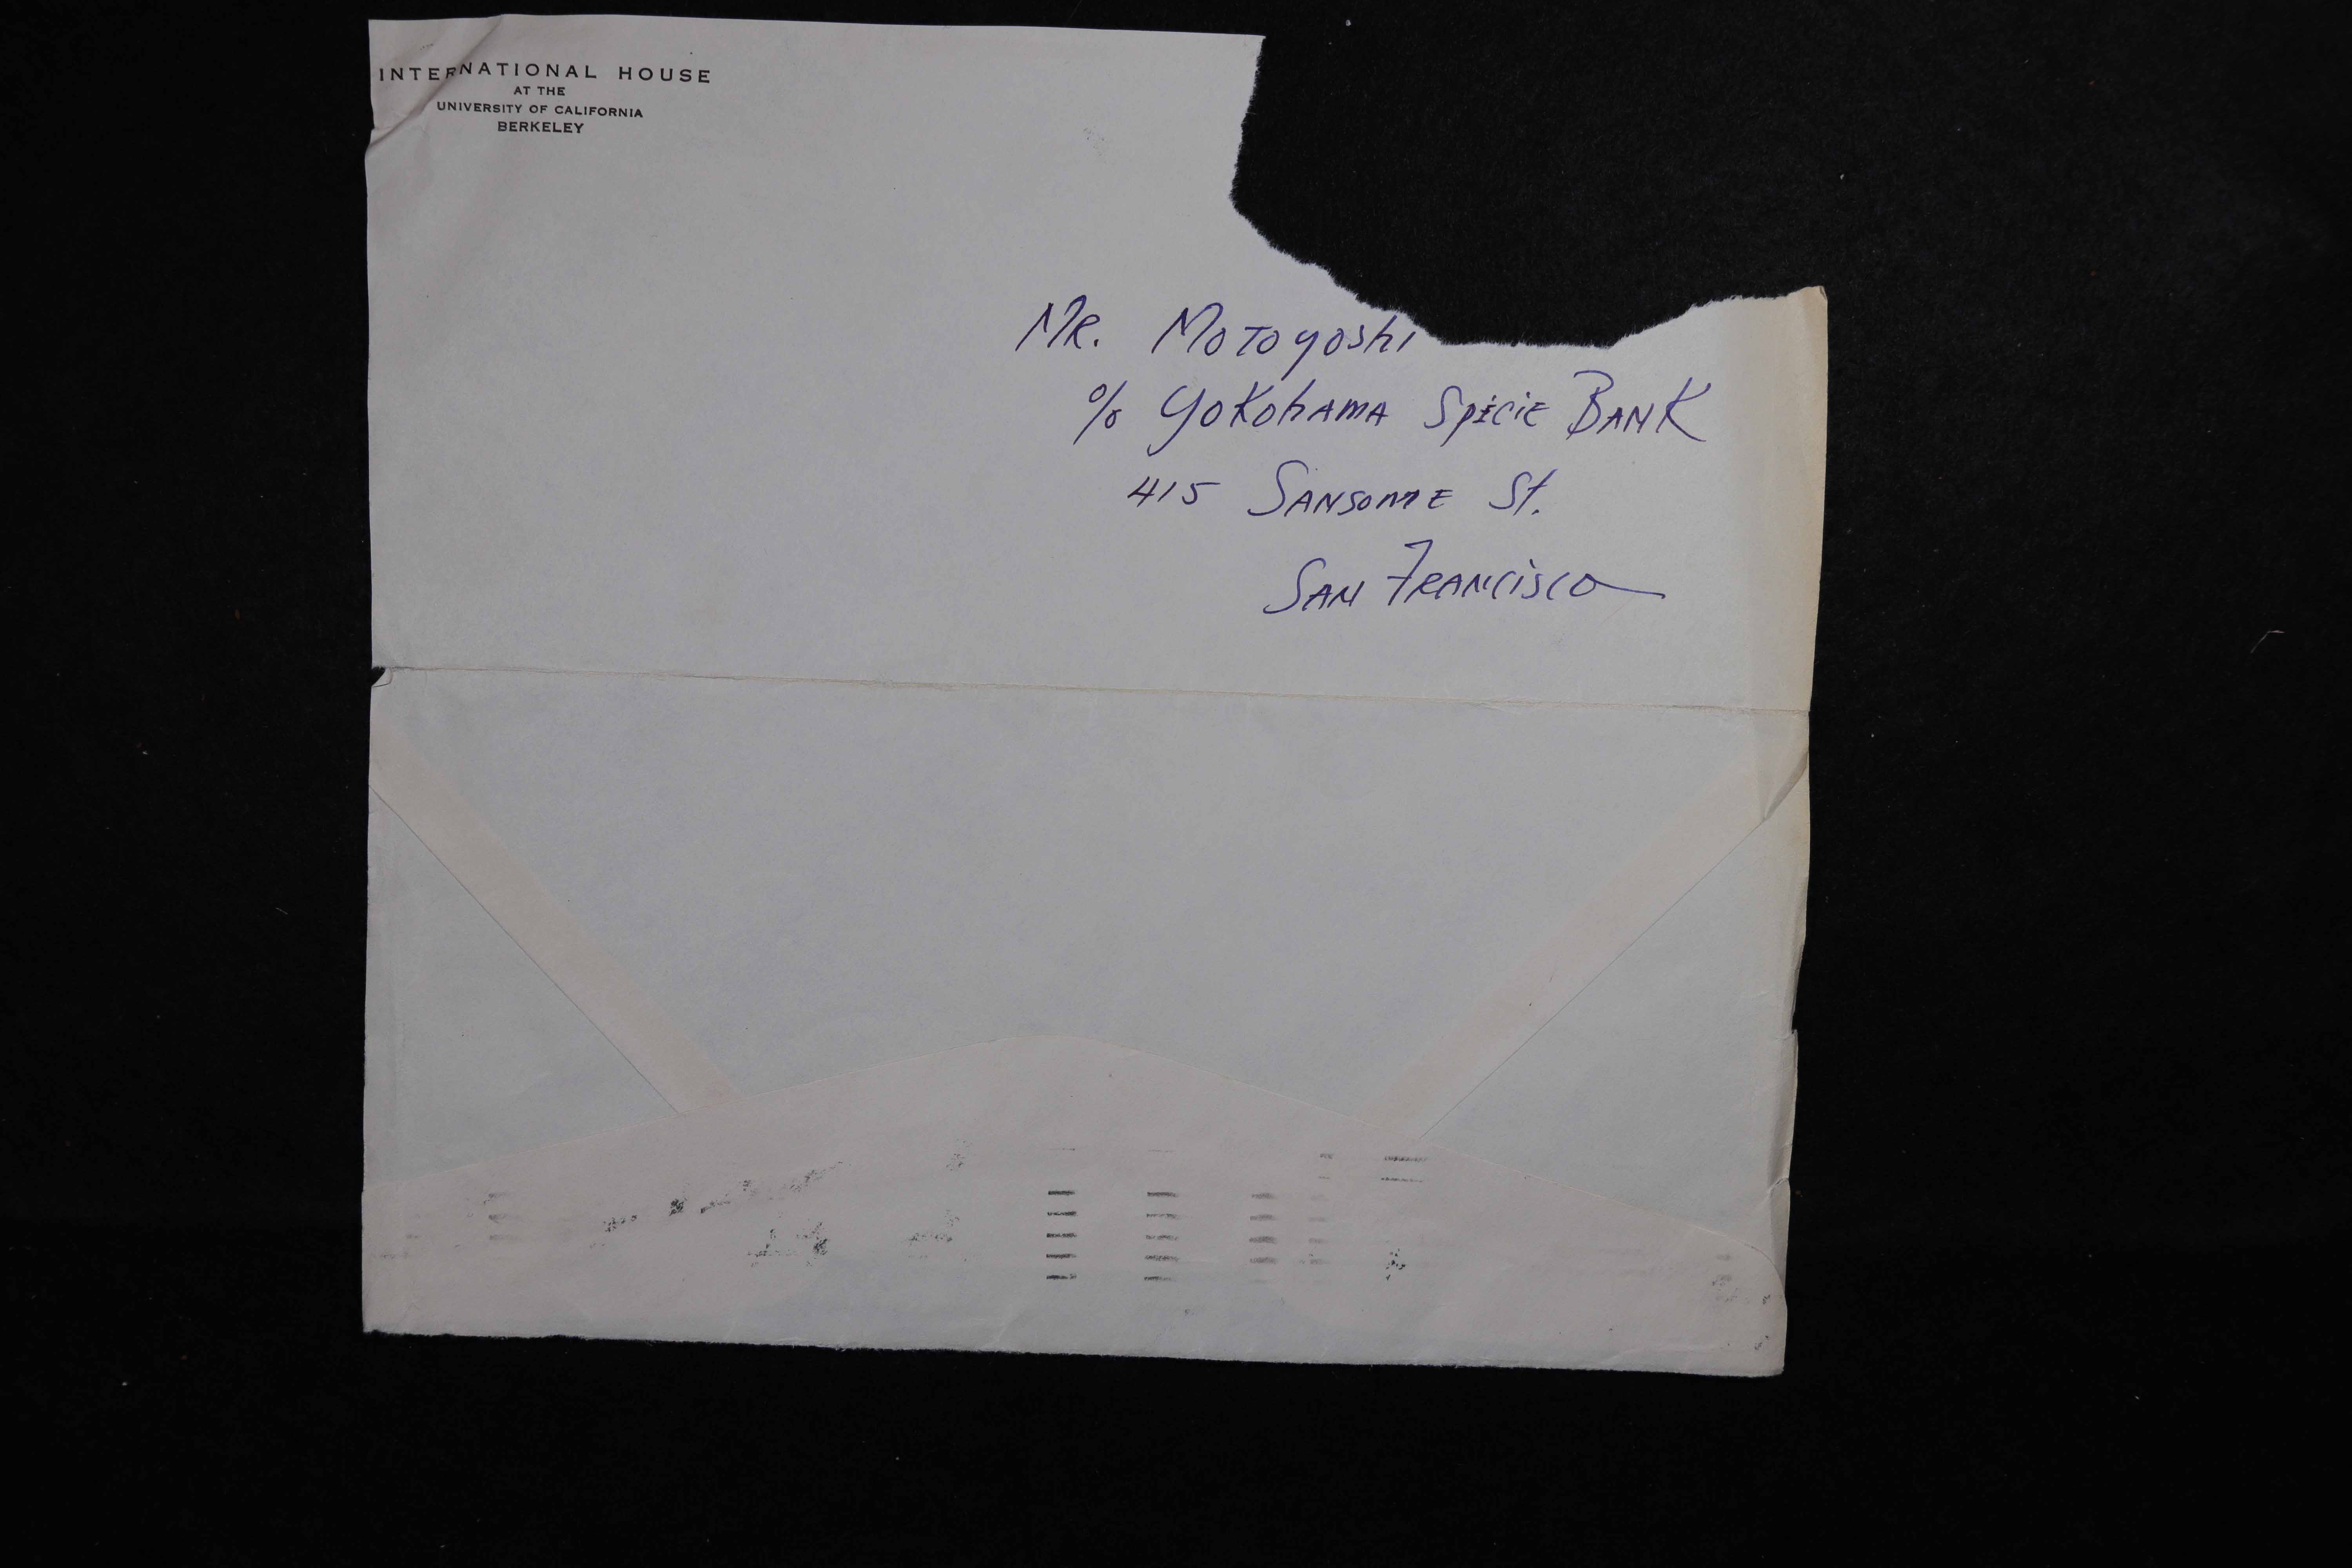 INTERNATIONAL HOUSE
AT THE
UNIVERSITY OF CALIFORNIA
BERKELEY
MR. MOTOYOSHI
% YOKOHAMA SPICIE BANK
415 SANSOME St.
SAN FRANCISCO